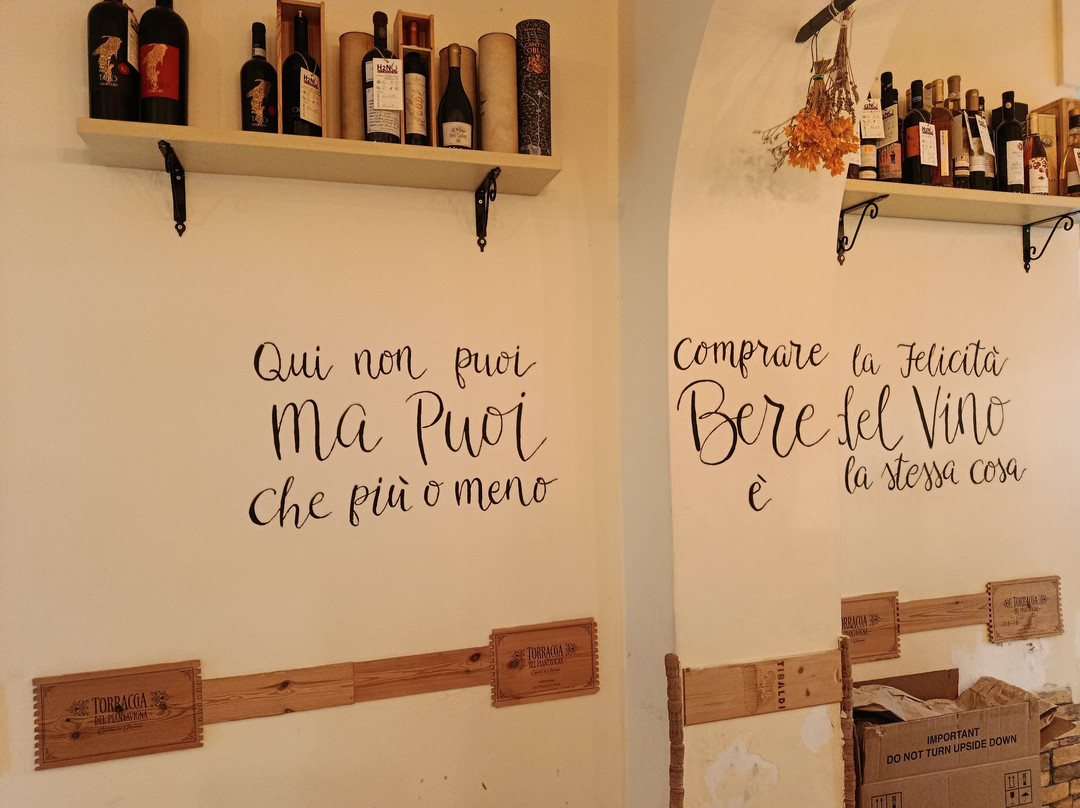 H2NO
H2NO
Qui non puoi comprare la Felicità
Ma Puoi Bere del Vino
che più o meno è la stessa cosa
TORRACCIA
DEL PIANTAVIGNA
TORRACCIA
DEL PIANTAVIGNA
TORRACCIA
TIBALDI
IMPORTANT
DO NOT TURN UPSIDE DOWN